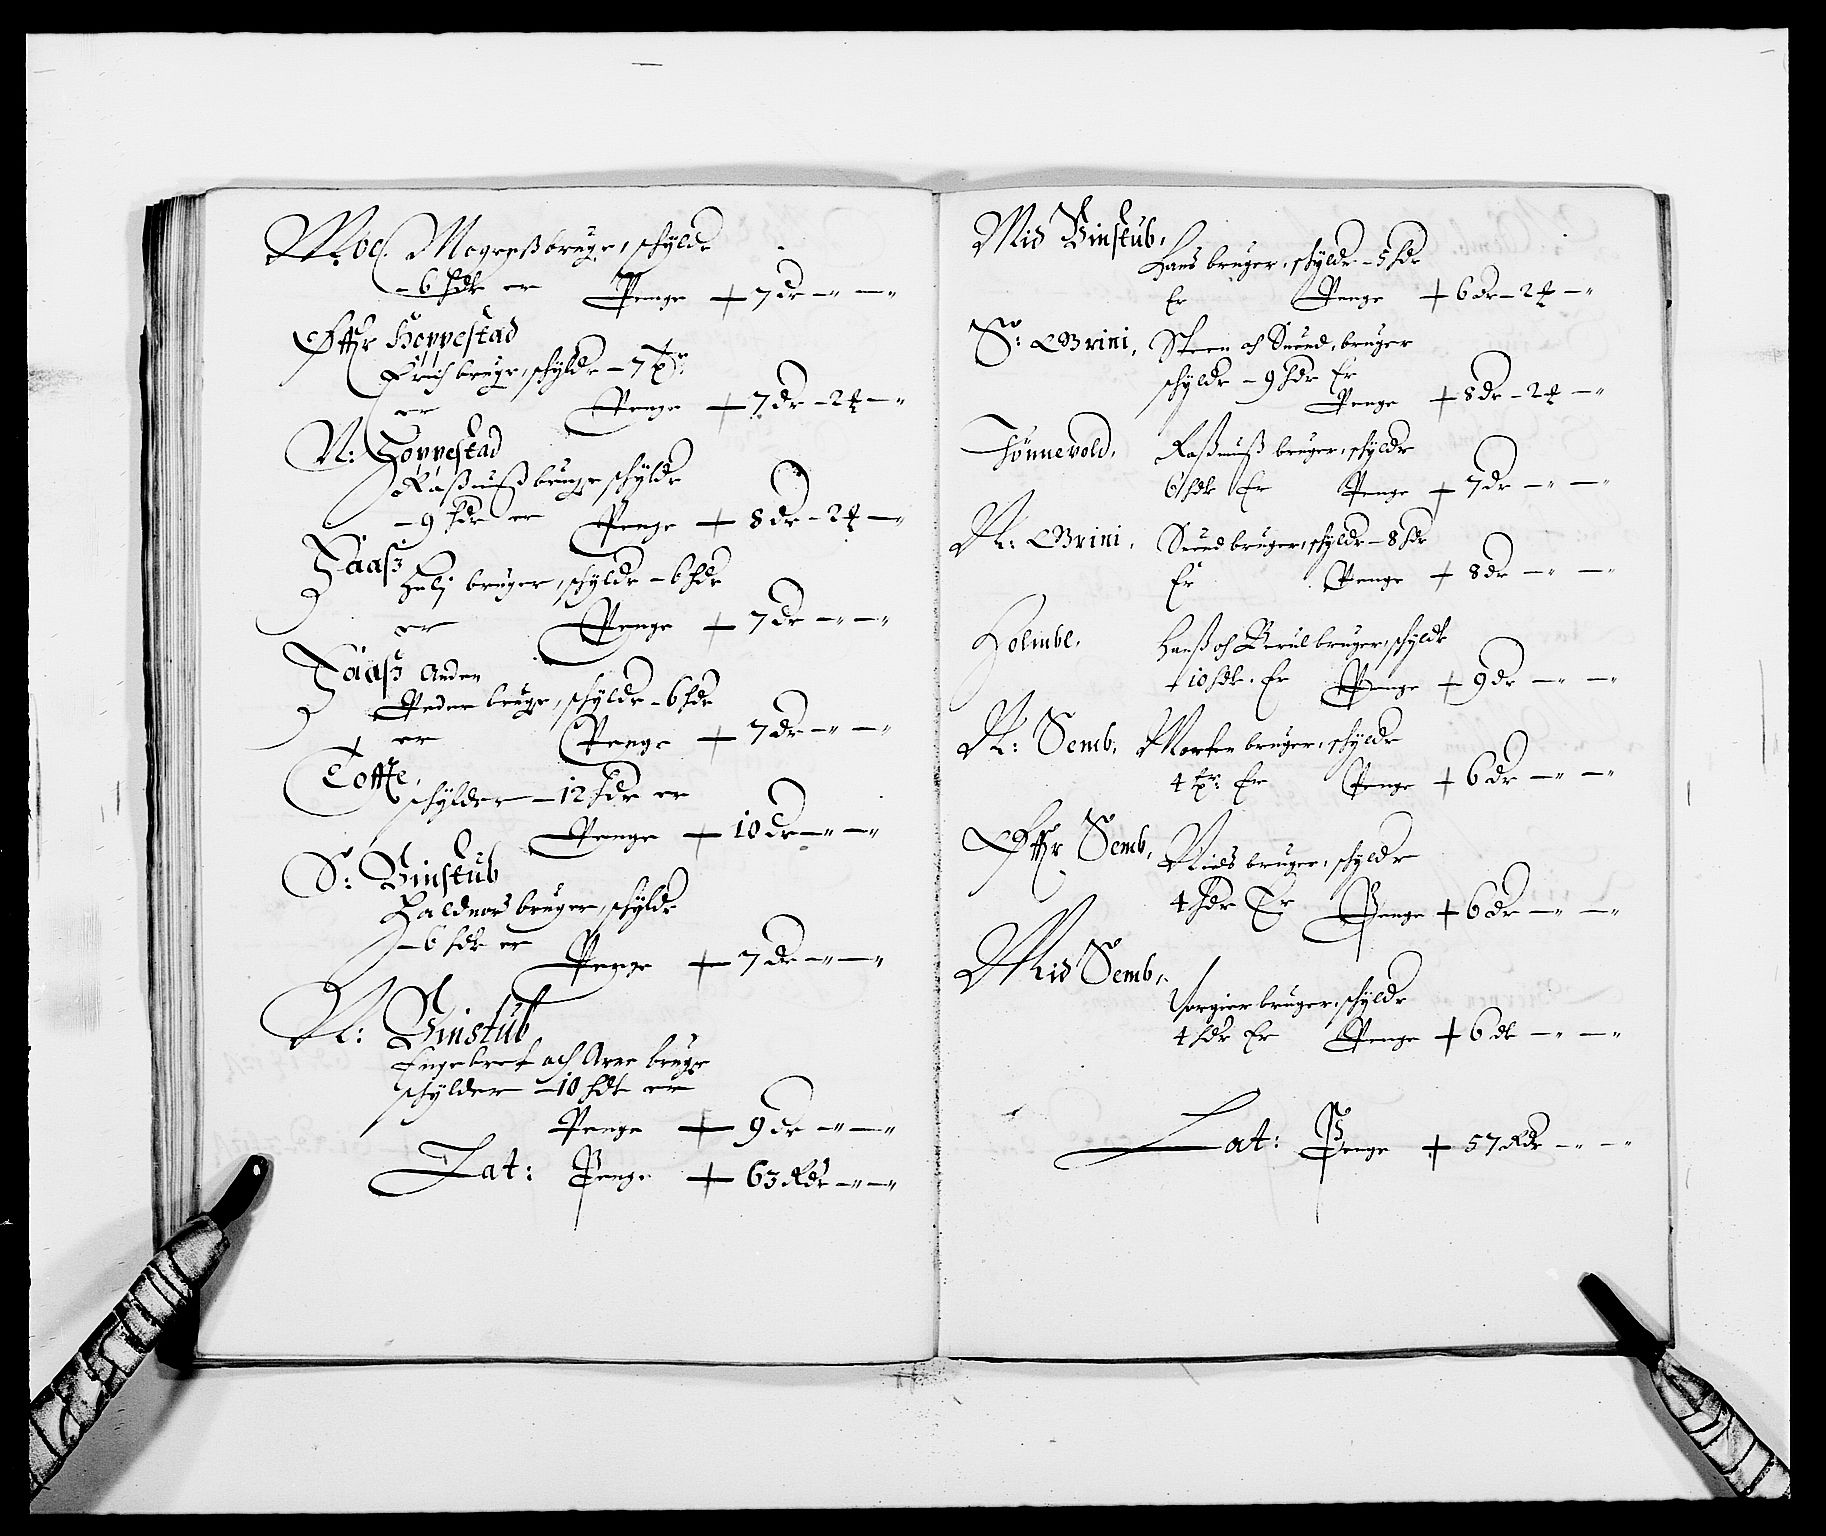 Moe. Mogenß bruger, schylder
– 6 hdr er Penge + 7 dr – " – "
Øffr Hoppestad
Erich bruger, schylder – 7 tr:
er Penge + 7 dr – 2 ℔ – "
N: Hoppestad
Raßmuß bruger schylder
– 9 hdr er Penge + 8 dr – 2 ℔ – "
Haaß
Helj bruger, schylder – 6 hdr
er Penge + 7 dr – " – "
Haaß Anden
Peder bruger, schylder – 6 hdr
er Penge + 7 dr – " – "
Tofte,
schylder – 12 hdr er
Penge + 10 dr – " – "
S: Vinstub
Halduor bruger, schylder
– 6 hdr er Penge + 7 dr – " – "
N: Vinstub
Engebret och Arne bruger
schylder – 10 hdr er
Penge + 9 dr – " – "
Lat: Penge + 63 Rdr – " – "
Mid Vinstub,
Hans bruger, schylder – 5 hdr
Er Penge + 6 dr – 2 ℔ – "
S: Brini, Steen och Suend, bruger
schylder – 9 hdr Er
Penge + 8 dr – 2 ℔ – "
Thønnevold, Raßmuß bruger, schylder
6 hdr Er Penge + 7 dr – " – "
N: Brini, Suend bruger, schylder – 8 hdr
Er Penge + 8 dr – " – "
Holmbl, Hanß och bruger, schylder
+ 10 hdr. Er Penge + 9 dr – " – "
N: Semb, Morten bruger, schylder
4 tr: Er Penge + 6 dr – " – "
Øffr Semb, Niels bruger, schylder
4 hdr Er Penge + 6 dr – " – "
Mid Semb,
Jørgier bruger, schylder
4 hdr Er Penge + 6 dr – " – "
Lat: Penge + 57 Rdr – " – "